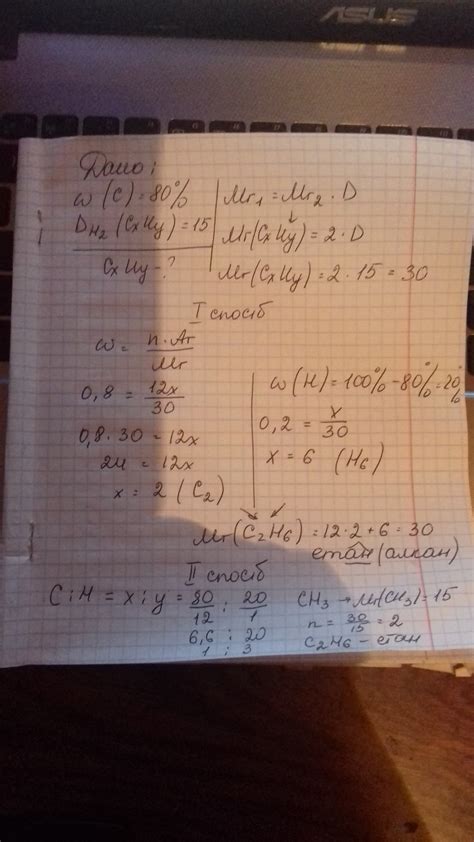 ASUS
Дано:
w(C)=80%
D H2 (CxHy)=15
CxHy-?
Mr1=Mr2·D
Mr(CxHy)=2·D
Mr(CxHy)=2·15=30
I спосіб
w=n·Ar/Mr
0,8=12x/30
0,8·30=12x
24=12x
x=2 (C2)
w(H)=100%-80%=20%
0,2=x/30
x=6 (H6)
Mr(C2H6)=12·2+6=30
етан (алкан)
II спосіб
C:H=x:y=80/12:20/1
6,6:20
1:3
CH3→Mr(CH3)=15
n=30/15=2
C2H6-етан